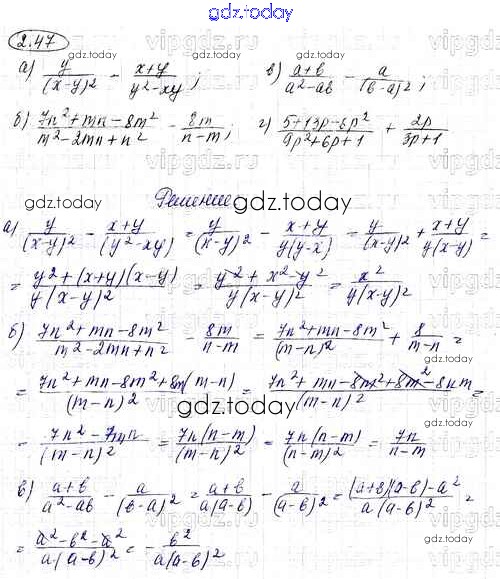 gdz.today
2.47
gdz.today gdz.today
а) y/(x-y)² - (x+y)/(y²-xy); в) (a+b)/(a²-ab) - a/(b-a)²;
б) (7n²+mn-8m²)/(m²-2mn+n²) - 8m/(n-m); г) (5+13p-6p²)/(9p²+6p+1) + 2p/(3p+1)
gdz.today gdz.today
Решение
gdz.today
а) y/(x-y)² - (x+y)/(y²-xy) = y/(x-y)² - (x+y)/(y(y-x)) = y/(x-y)² + (x+y)/(y(x-y)) =
= (y²+(x+y)(x-y))/(y(x-y)²) = (y²+x²-y²)/(y(x-y)²) = x²/(y(x-y)²)
gdz.today
б) (7n²+mn-8m²)/(m²-2mn+n²) - 8m/(n-m) = (7n²+mn-8m²)/(m-n)² + 8/(m-n) =
= (7n²+mn-8m²+8m(m-n))/(m-n)² = (7n²+mn-8m²+8m²-8nm)/(m-n)² =
gdz.today
= (7n²-7mn)/(m-n)² = 7n(n-m)/(m-n)² = 7n(n-m)/(n-m)² = 7n/(n-m)
gdz.today
в) (a+b)/(a²-ab) - a/(b-a)² = (a+b)/(a(a-b)) - a/(a-b)² = ((a+b)(a-b)-a²)/(a(a-b)²) =
= (a²-b²-a²)/(a(a-b)²) = - b²/(a(a-b)²)
gdz.today